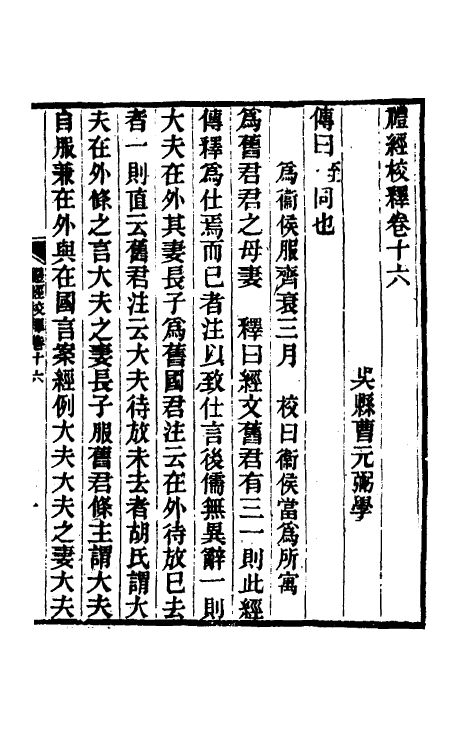 禮經校釋卷十六
吳縣曹元弼學
傳曰至同也
爲衞侯服齊衰三月　校曰衞侯當爲所寓
爲舊君君之母妻　釋曰經文舊君有三一則此經
傳釋爲仕焉而已者注以致仕言後儒無異辭一則
大夫在外其妻長子爲舊國君注云在外待放已去
者一則值云舊君注云大夫待放未去者胡氏謂大
夫在外條之言大夫之妻長子服舊君條主謂大夫
自服兼在外與在國言案經例大夫大夫之妻大夫
禮經校釋卷十六
一